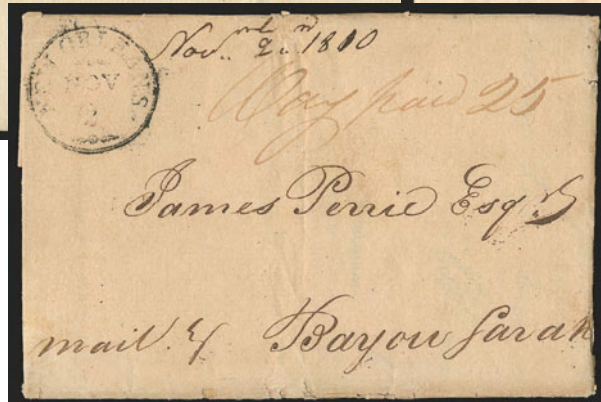 NEW ORLEANS.
NOV
2
Nov.mb 2.n 1810
Way paid 25
James Perrie Esqr.
mail. Bayou Sarah